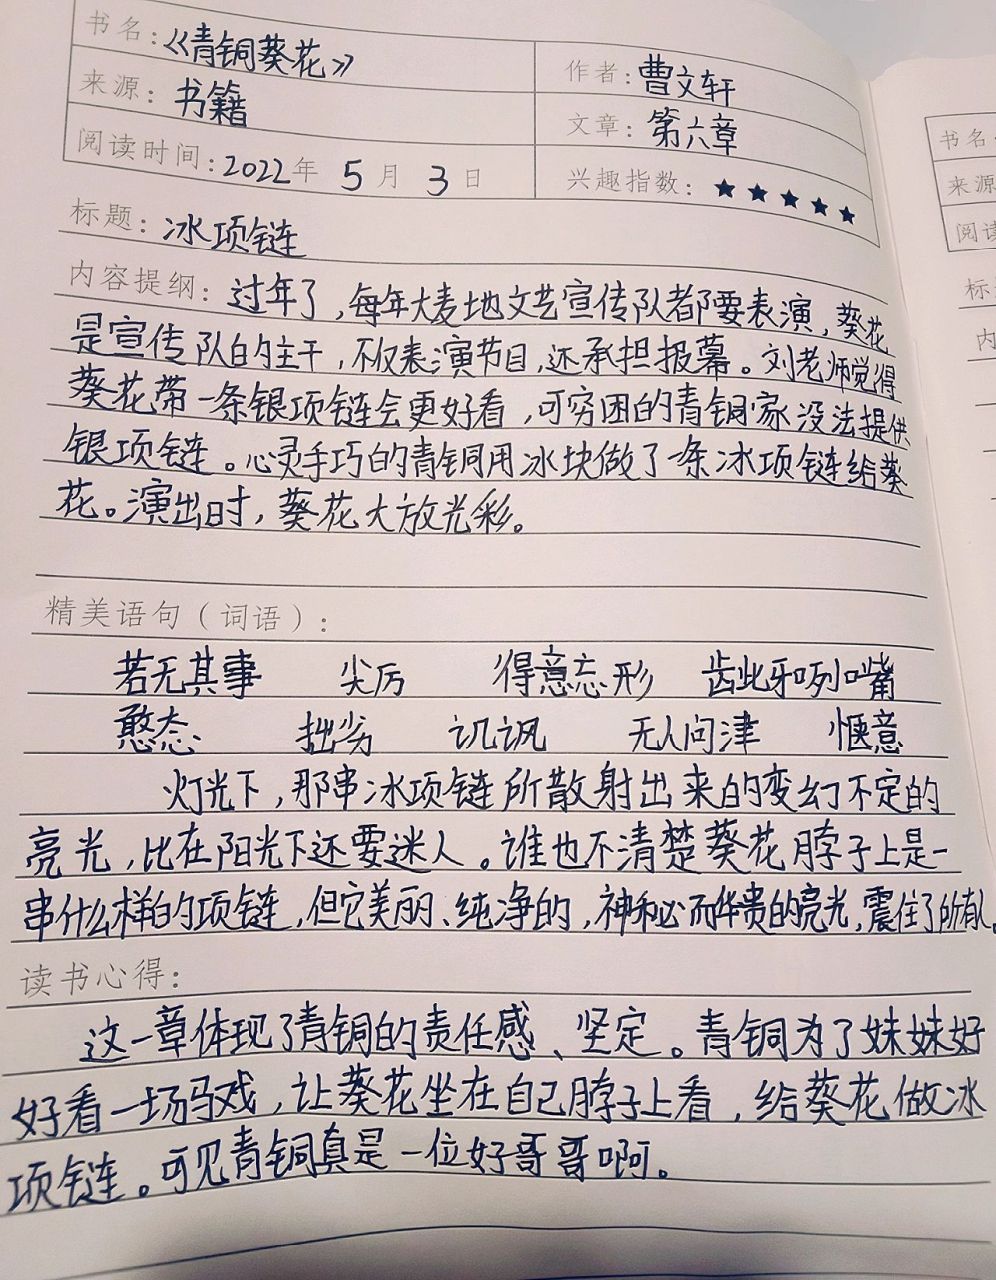 书名：《青铜葵花》
作者：曹文轩
来源：书籍
文章：第六章
阅读时间：2022年 5月 3日
兴趣指数：★★★★★
标题：冰项链
内容提纲：过年了，每年大麦地文艺宣传队都要表演，葵花
是宣传队的主干，不仅表演节目，还承担报幕。刘老师觉得
葵花带一条银项链会更好看，可穷困的青铜家没法提供
银项链。心灵手巧的青铜用冰块做了一条冰项链给葵
花。演出时，葵花大放光彩。
精美语句（词语）：
若无其事 尖厉 得意忘形 龇牙咧嘴
憨态 拙劣 讥讽 无人问津 惬意
灯光下，那串冰项链所散射出来的变幻不定的
亮光，比在阳光下还要迷人。谁也不清楚葵花脖子上是一
串什么样的项链，但它美丽、纯净的，神秘而华贵的亮光，震住了所有人。
读书心得：
这一章体现了青铜的责任感、坚定。青铜为了妹妹好
好看一场马戏，让葵花坐在自己脖子上看，给葵花做冰
项链。可见青铜真是一位好哥哥啊。
书名
来源
阅读
标
内